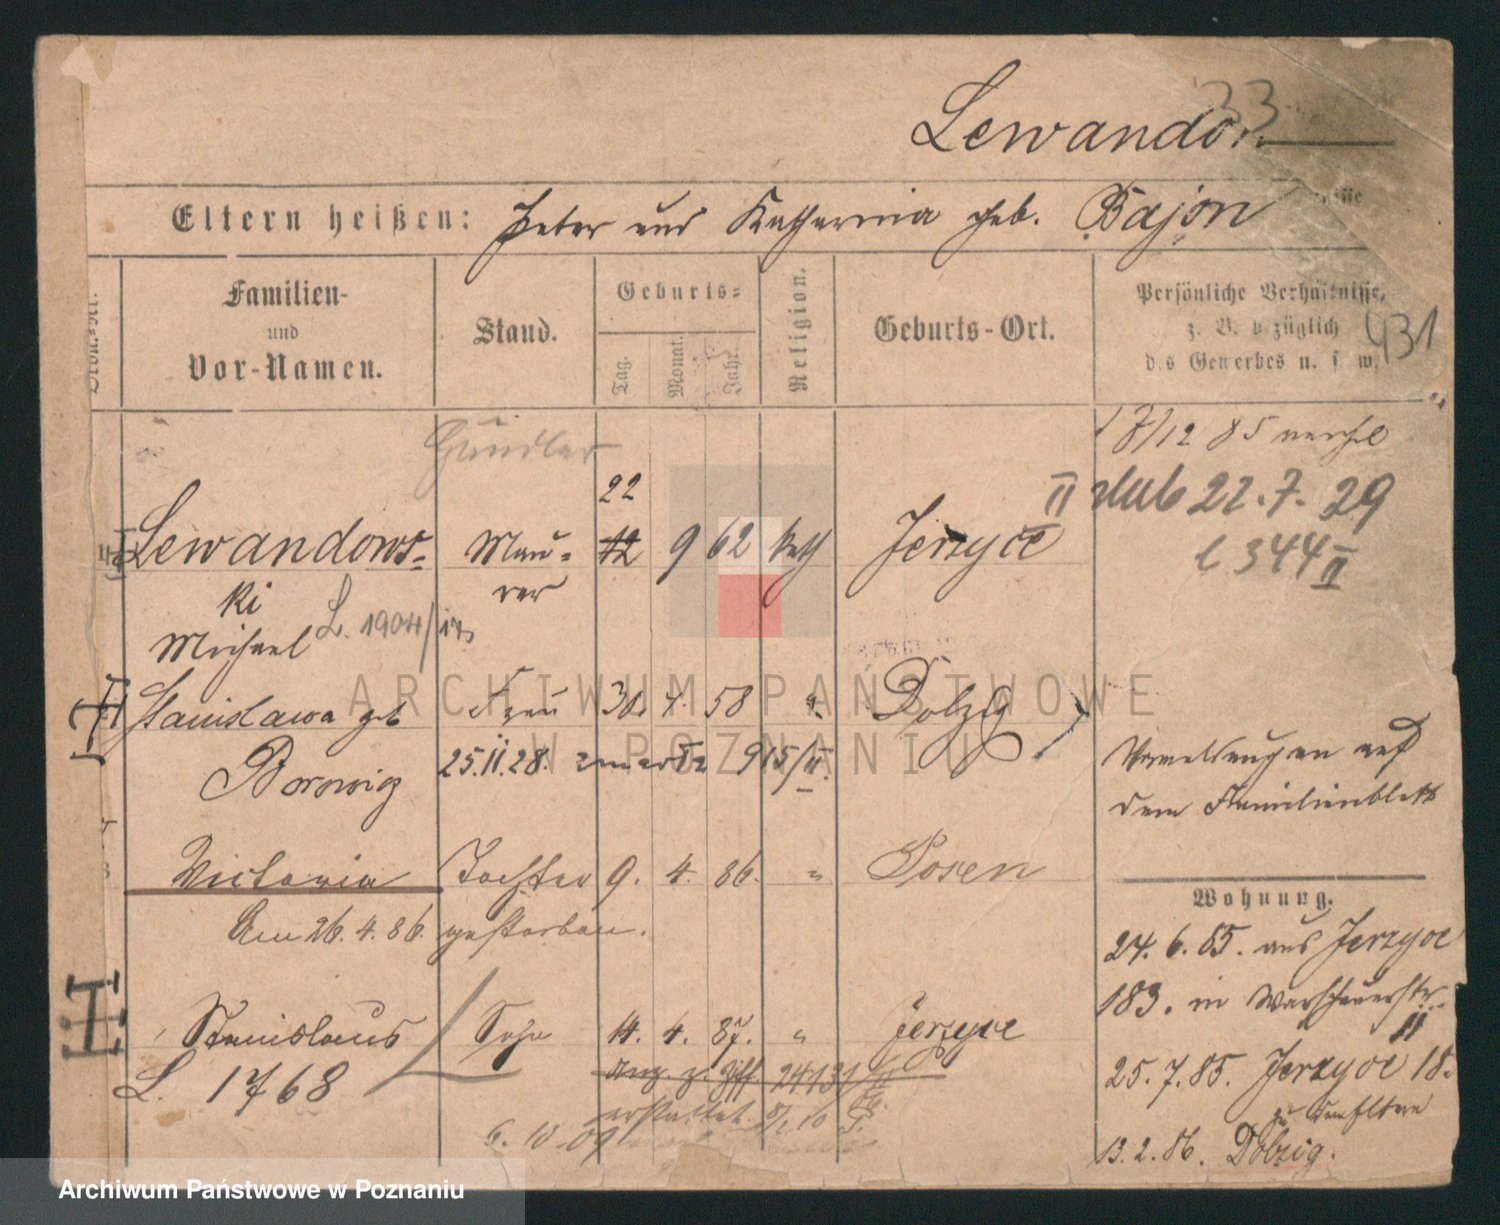 33
Lewandow
Eltern heißen: Peter und Katharina geb. Bajon
Familien-
und
Vor-Namen.
Stand.
Geburts-
Tag.
Monat.
Jahr.
Religion.
Geburts-Ort.
Persönliche Verhältnisse,
z. B. bezüglich
des Gewerbes u. s. w.
431
Händler
17/12 85
22
II dub 22. 7. 29
Lewandows- Mau- 12 9 62 kath Jerzyce
l 344 II
ki rer
Michael L. 1904/
Stanislawa geb Frau 30. 4. 58 " Dolzig
Borowicz 25.11.28. 915/II.
Vermeldungen auf
dem Familienblatt
Victoria Tochter 9. 4. 86. " Posen
Am 26. 4. 86. gestorben.
Wohnung.
24. 6. 85. aus Jerzyce
183. in
11
Stanislaus Sohn 14. 4. 87. " Jerzyce
L. 1768
25. 7. 85. Jerzyce 18.
Anz. z. Ziff 24131
erstattet.
6. 10. 09
zu den Eltern
13. 2. 86. Dolzig.
ARCHIWUM PAŃSTWOWE
W POZNANIU
Archiwum Państwowe w Poznaniu